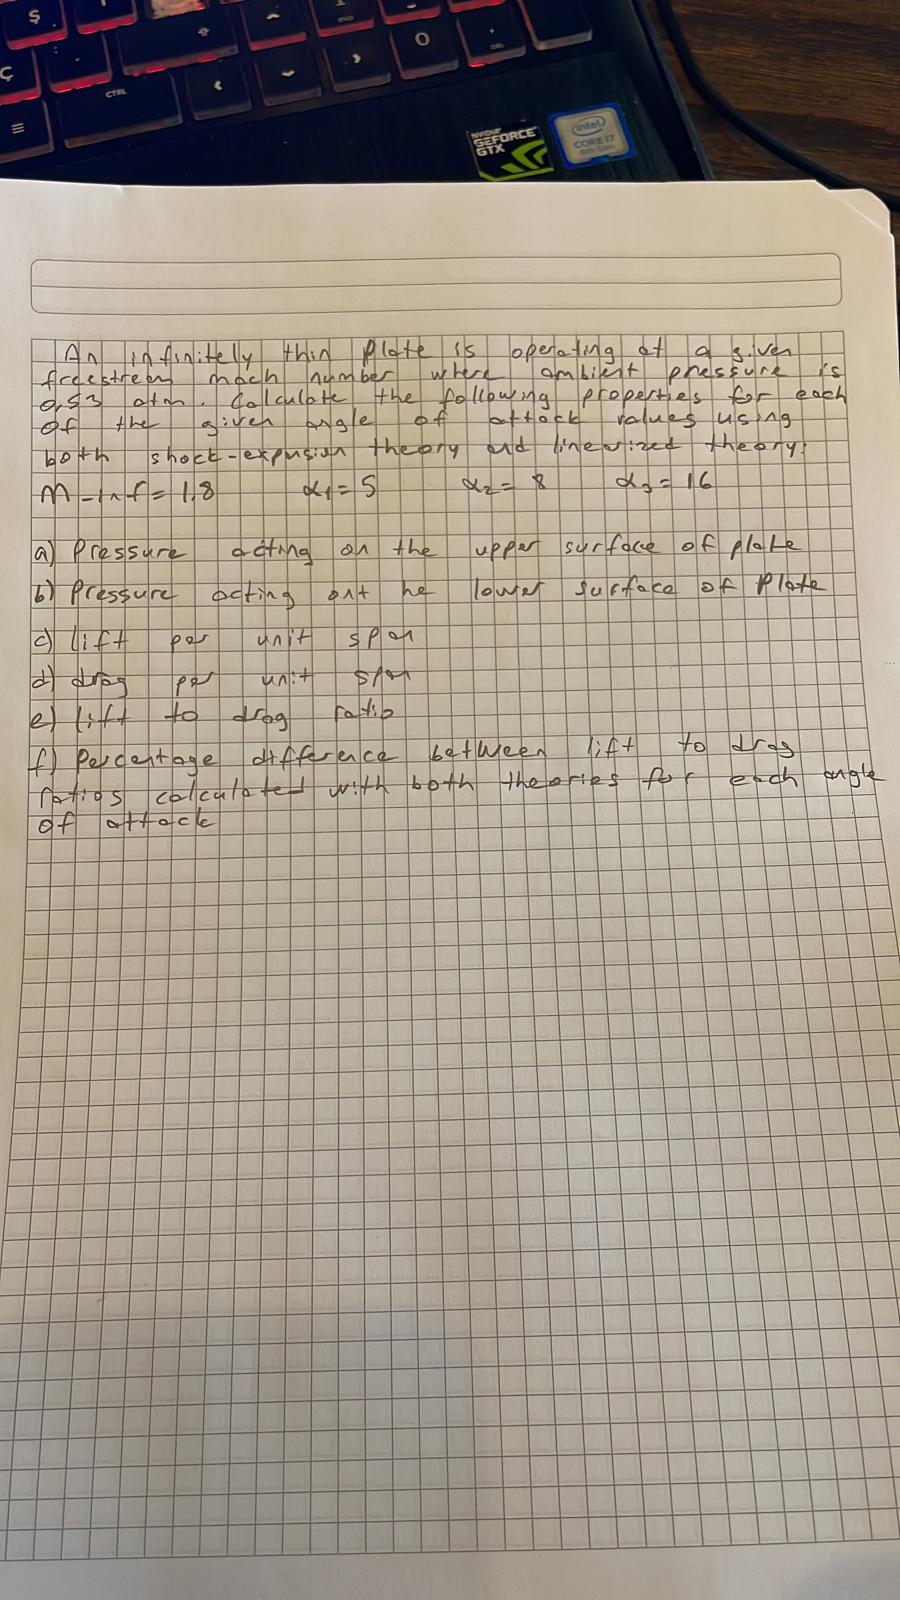 Ş
Ç
CTRL
NVIDIA
GEFORCE
GTX
intel
CORE i7
An infinitely thin Plate is operating at a given
freestream mach number where ambient pressure is
0,53 atm. Calculate the following properties for each
of the given angle of attack values using
both shock-expusion theory and linearized theory:
M-inf = 1,8 α₁ = 5 α₂ = 8 α₃ = 16
a) Pressure acting on the upper surface of plate
b) Pressure acting ont he lower surface of Plate
c) lift per unit span
d) drag per unit span
e) lift to drag ratio
f) Percentage difference between lift to drag
ratios calculated with both theories for each angle
of attack